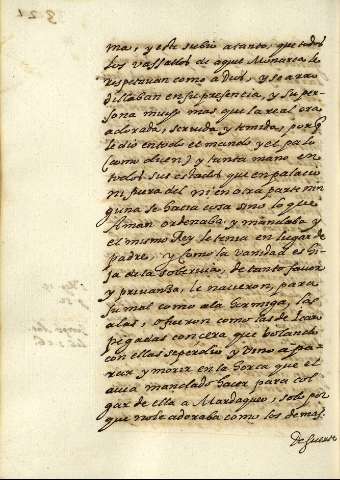 ma, y este subio a tanto, que todos
los vassallos de aquel Monarca le
respetavan como a Dios, y se arro
dillaban en su presencia, y su per-
sona muy mas que la real era
adorada, servida, y temida, porq
le dio en todo el mundo y el palo
(como dicen) y tanta mano en
todos sus estados que en palacio
ni fuera del ni en otra parte nin
guna se hacia cosa sino lo que
Aman ordenaba, y mandaba y
el mismo Rey le tenia en lugar de
padre, y como la vanidad es hi
ja de la sobervia, de tanto favor
y privanza, le nacieron, para
su mal como a la hormiga, las
alas, o fueron como las de Icaro
pegadas con cera que bolando
con ellas se perdio y vino a pa-
rar y morir en la horca que el
avia mandado hacer para col
gar de ella a Mardoqueo, solo por
que no le adoraba como los demas
de suerte